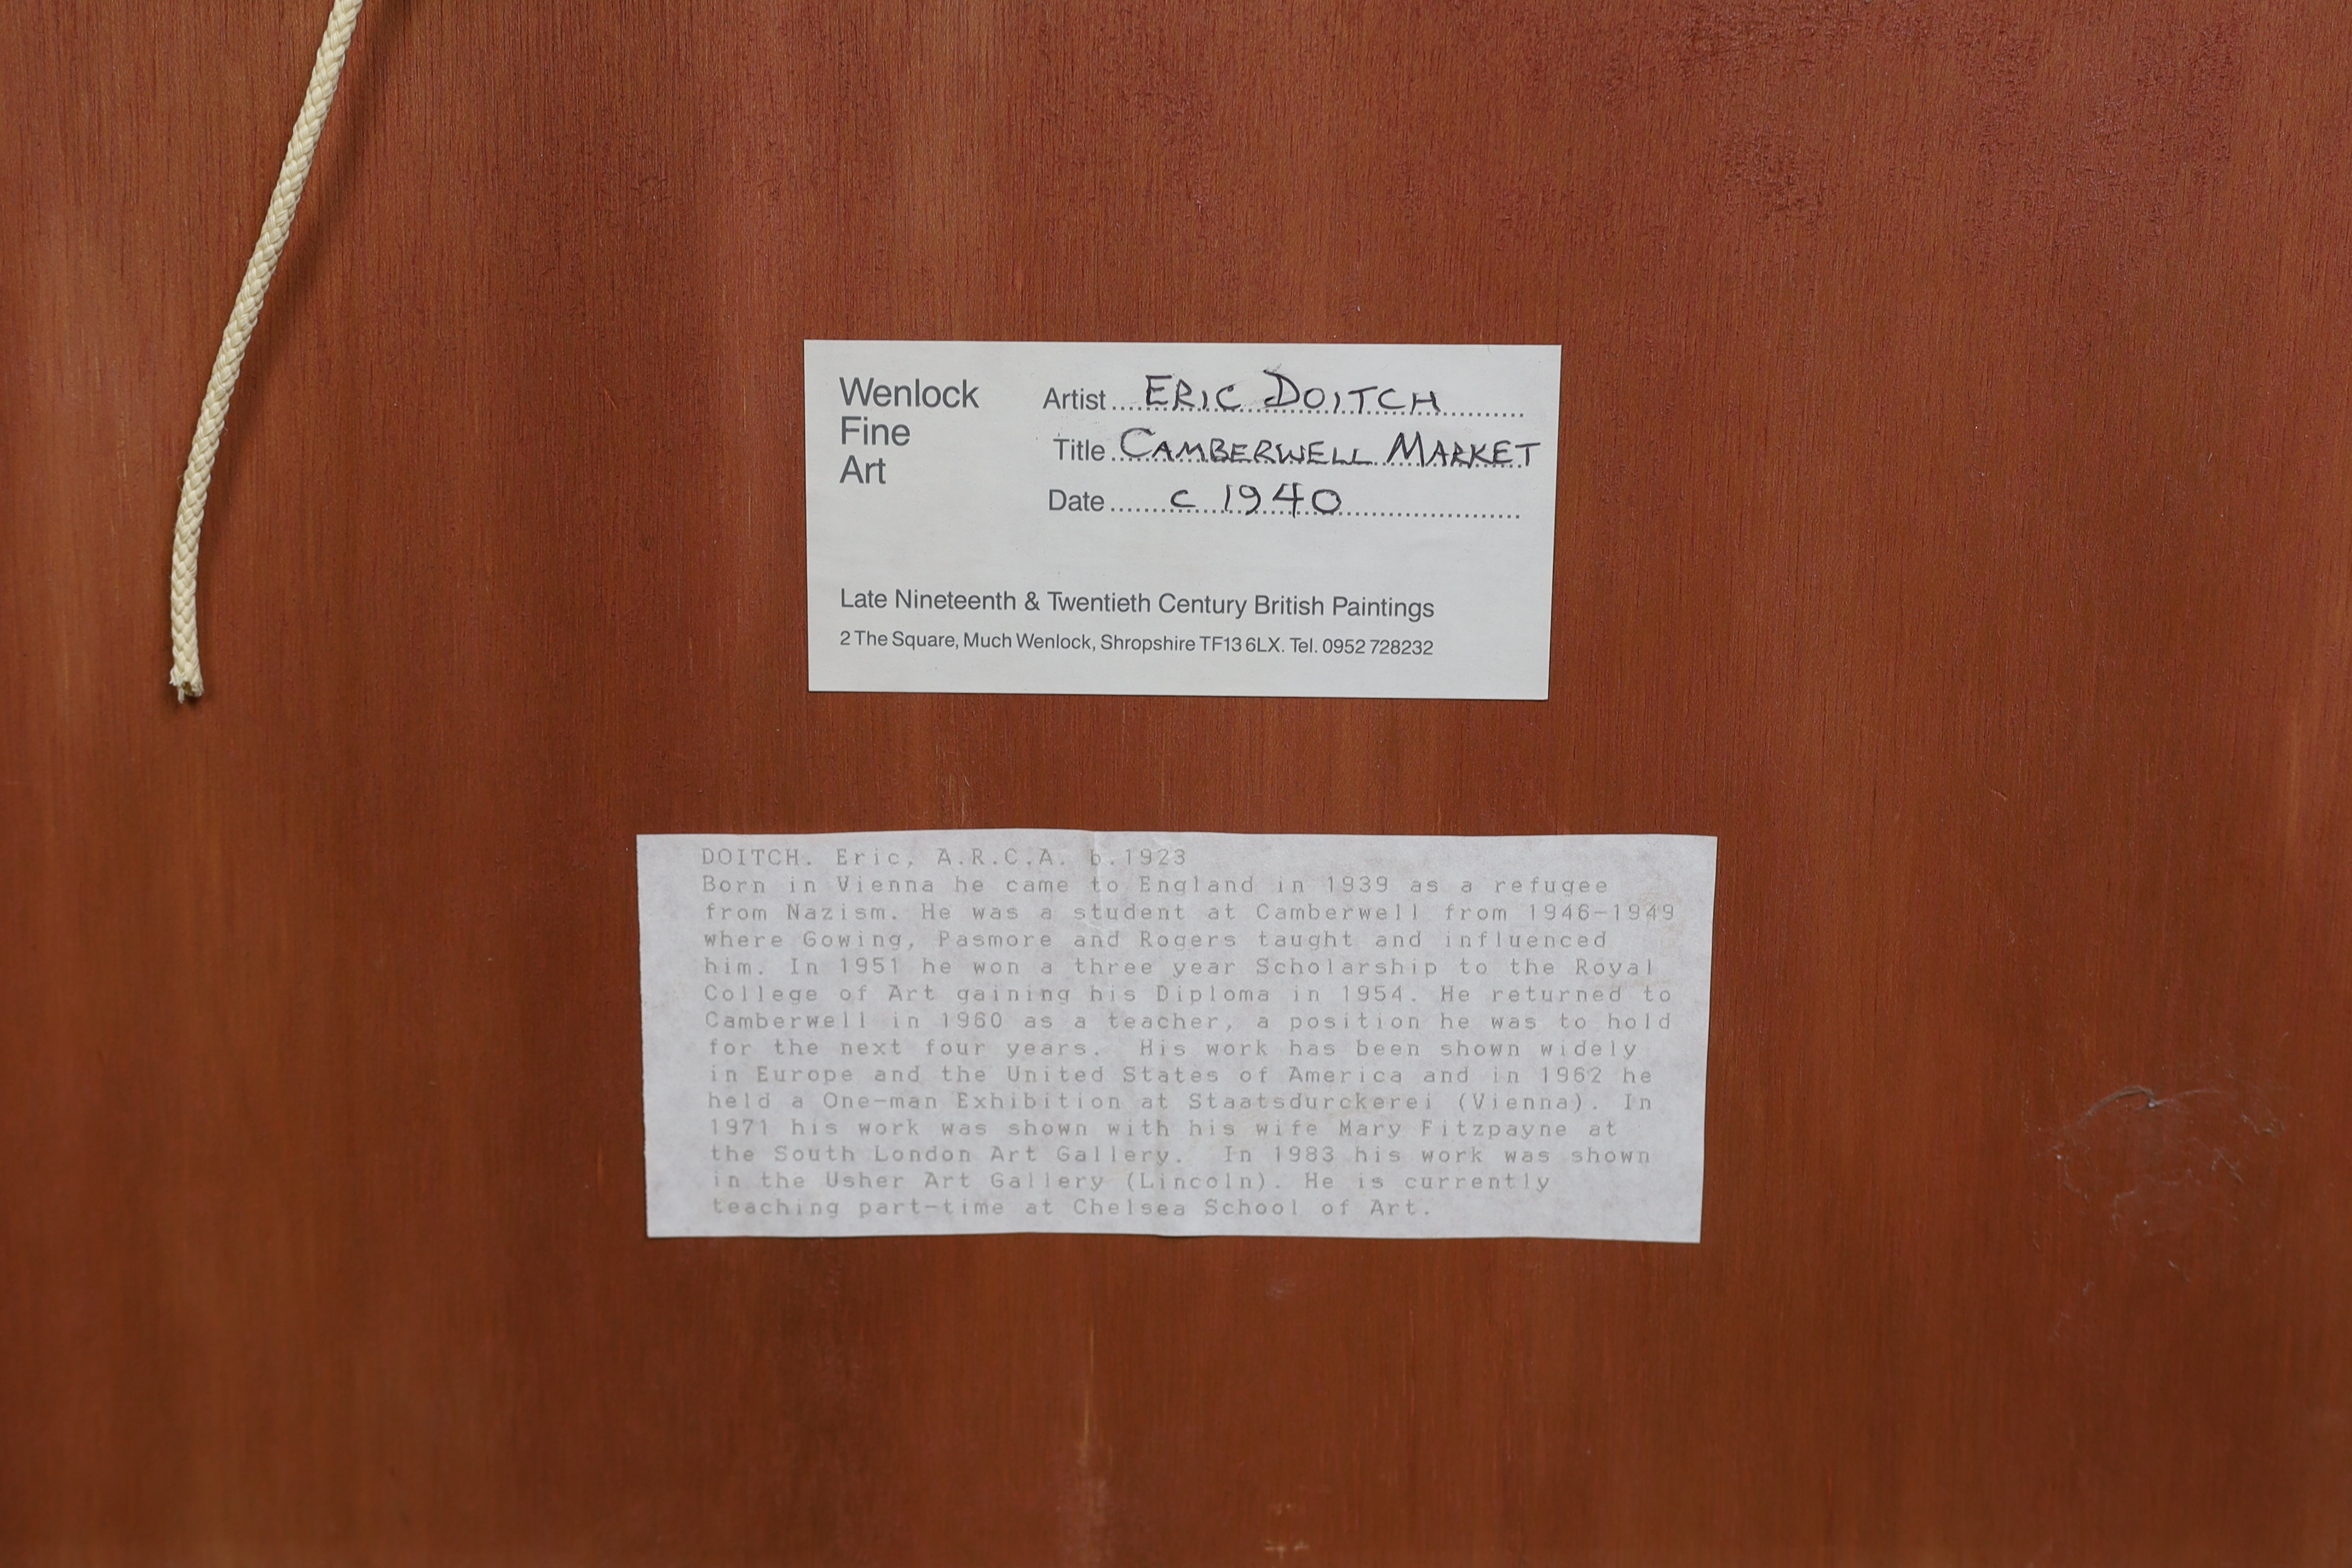 Wenlock
Fine
Art
Artist ERIC DOITCH
Title CAMBERWELL MARKET
Date c 1940
Late Nineteenth & Twentieth Century British Paintings
2 The Square, Much Wenlock, Shropshire TF13 6LX. Tel. 0952 728232
DOITCH. Eric, A.R.C.A. b.1923
Born in Vienna he came to England in 1939 as a refugee
from Nazism. He was a student at Camberwell from 1946-1949
where Gowing, Pasmore and Rogers taught and influenced
him. In 1951 he won a three year Scholarship to the Royal
College of Art gaining his Diploma in 1954. He returned to
Camberwell in 1960 as a teacher, a position he was to hold
for the next four years. His work has been shown widely
in Europe and the United States of America and in 1962 he
held a One-man Exhibition at Staatsdurckerei (Vienna). In
1971 his work was shown with his wife Mary Fitzpayne at
the South London Art Gallery. In 1983 his work was shown
in the Usher Art Gallery (Lincoln). He is currently
teaching part-time at Chelsea School of Art.